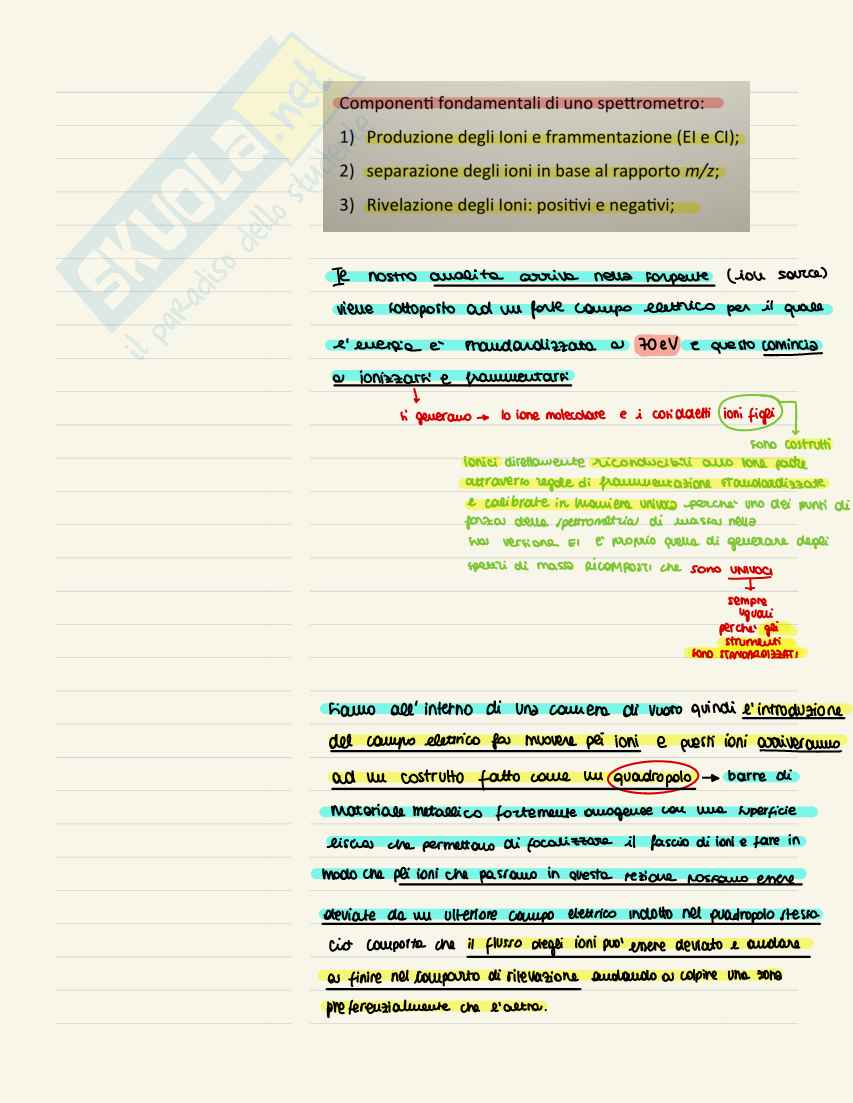 SKUOLA.net
il paradiso dello studente
Componenti fondamentali di uno spettrometro:
1) Produzione degli Ioni e frammentazione (EI e CI);
2) separazione degli ioni in base al rapporto m/z;
3) Rivelazione degli Ioni: positivi e negativi;
Il nostro analita arriva nella sorgente (ion source)
viene sottoposto ad un forte campo elettrico per il quale
l'energia è standardizzata a 70 eV e questo comincia
a ionizzarsi e frammentarsi
si generano → lo ione molecolare e i cosiddetti ioni figli
sono costrutti
ionici direttamente riconducibili allo ione padre
attraverso regole di frammentazione standardizzate
e calibrate in maniera univoca perché uno dei punti di
forza della spettrometria di massa nella
sua versione EI è proprio quella di generare degli
spettri di massa RICOMPOSTI che sono UNIVOCI
sempre
uguali
perché gli
strumenti
sono STANDARDIZZATI
Siamo all'interno di una camera di vuoto quindi l'introduzione
del campo elettrico fa muovere gli ioni e questi ioni arriveranno
ad un costrutto fatto come un quadropolo → barre di
materiale metallico fortemente omogenee con una superficie
liscia che permettano di focalizzare il fascio di ioni e fare in
modo che gli ioni che passano in questa regione possano essere
deviate da un ulteriore campo elettrico indotto nel quadropolo stesso
ciò comporta che il flusso degli ioni può essere deviato e andare
a finire nel comparto di rilevazione andando a colpire una zona
preferenzialmente che l'altra.